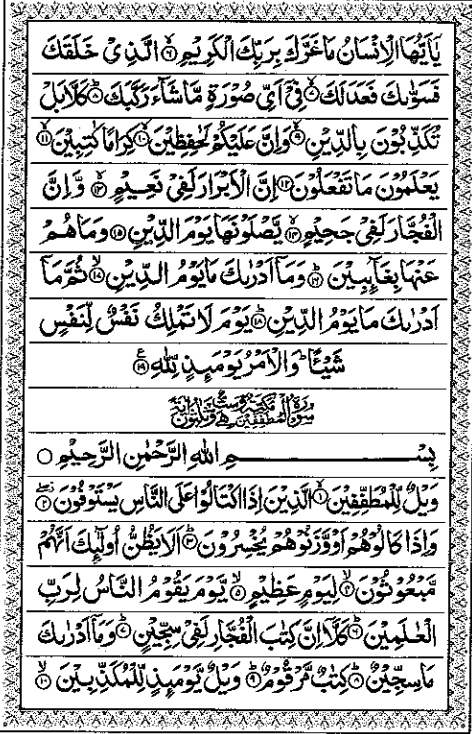 يٰٓاَيُّهَا الْاِنْسَانُ مَا غَرَّكَ بِرَبِّكَ الْكَرِيْمِ ۙ﴿۶﴾ الَّذِيْ خَلَقَكَ
فَسَوّٰىكَ فَعَدَلَكَ ۙ﴿۷﴾ فِيْٓ اَيِّ صُوْرَةٍ مَّا شَآءَ رَكَّبَكَ ؕ﴿۸﴾ كَلَّا بَلْ
تُكَذِّبُوْنَ بِالدِّيْنِ ۙ﴿۹﴾ وَاِنَّ عَلَيْكُمْ لَحٰفِظِيْنَ ۙ﴿۱۰﴾ كِرَامًا كٰتِبِيْنَ ۙ﴿۱۱﴾
يَعْلَمُوْنَ مَا تَفْعَلُوْنَ ﴿۱۲﴾ اِنَّ الْاَبْرَارَ لَفِيْ نَعِيْمٍ ۚ﴿۱۳﴾ وَّاِنَّ
الْفُجَّارَ لَفِيْ جَحِيْمٍ ۚ﴿۱۴﴾ يَّصْلَوْنَهَا يَوْمَ الدِّيْنِ ﴿۱۵﴾ وَمَا هُمْ
عَنْهَا بِغَآئِبِيْنَ ؕ﴿۱۶﴾ وَمَآ اَدْرٰىكَ مَا يَوْمُ الدِّيْنِ ۙ﴿۱۷﴾ ثُمَّ مَآ
اَدْرٰىكَ مَا يَوْمُ الدِّيْنِ ؕ﴿۱۸﴾ يَوْمَ لَا تَمْلِكُ نَفْسٌ لِّنَفْسٍ
شَيْـًٔا ؕ وَالْاَمْرُ يَوْمَئِذٍ لِّلّٰهِ ﴿۱۹﴾
سُوْرَةُ الْمُطَفِّفِيْنَ مَكِّيَّةٌ وَّهِيَ سِتٌّ وَّثَلٰثُوْنَ اٰيَةً
بِسْمِ اللّٰهِ الرَّحْمٰنِ الرَّحِيْمِ
وَيْلٌ لِّلْمُطَفِّفِيْنَ ۙ﴿۱﴾ الَّذِيْنَ اِذَا اكْتَالُوْا عَلَى النَّاسِ يَسْتَوْفُوْنَ ﴿۲﴾
وَاِذَا كَالُوْهُمْ اَوْ وَّزَنُوْهُمْ يُخْسِرُوْنَ ؕ﴿۳﴾ اَلَا يَظُنُّ اُولٰٓئِكَ اَنَّهُمْ
مَّبْعُوْثُوْنَ ۙ﴿۴﴾ لِيَوْمٍ عَظِيْمٍ ۙ﴿۵﴾ يَّوْمَ يَقُوْمُ النَّاسُ لِرَبِّ
الْعٰلَمِيْنَ ؕ﴿۶﴾ كَلَّآ اِنَّ كِتٰبَ الْفُجَّارِ لَفِيْ سِجِّيْنٍ ؕ﴿۷﴾ وَمَآ اَدْرٰىكَ
مَا سِجِّيْنٌ ؕ﴿۸﴾ كِتٰبٌ مَّرْقُوْمٌ ؕ﴿۹﴾ وَيْلٌ يَّوْمَئِذٍ لِّلْمُكَذِّبِيْنَ ۙ﴿۱۰﴾